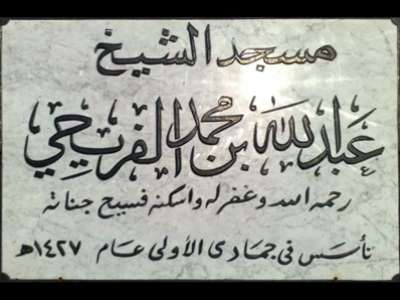 مسجد الشيخ
عبدالله بن محمد الفريحي
رحمه الله وغفر له واسكنه فسيح جناته
تأسس في جمادى الأولى عام ١٤٢٧هـ